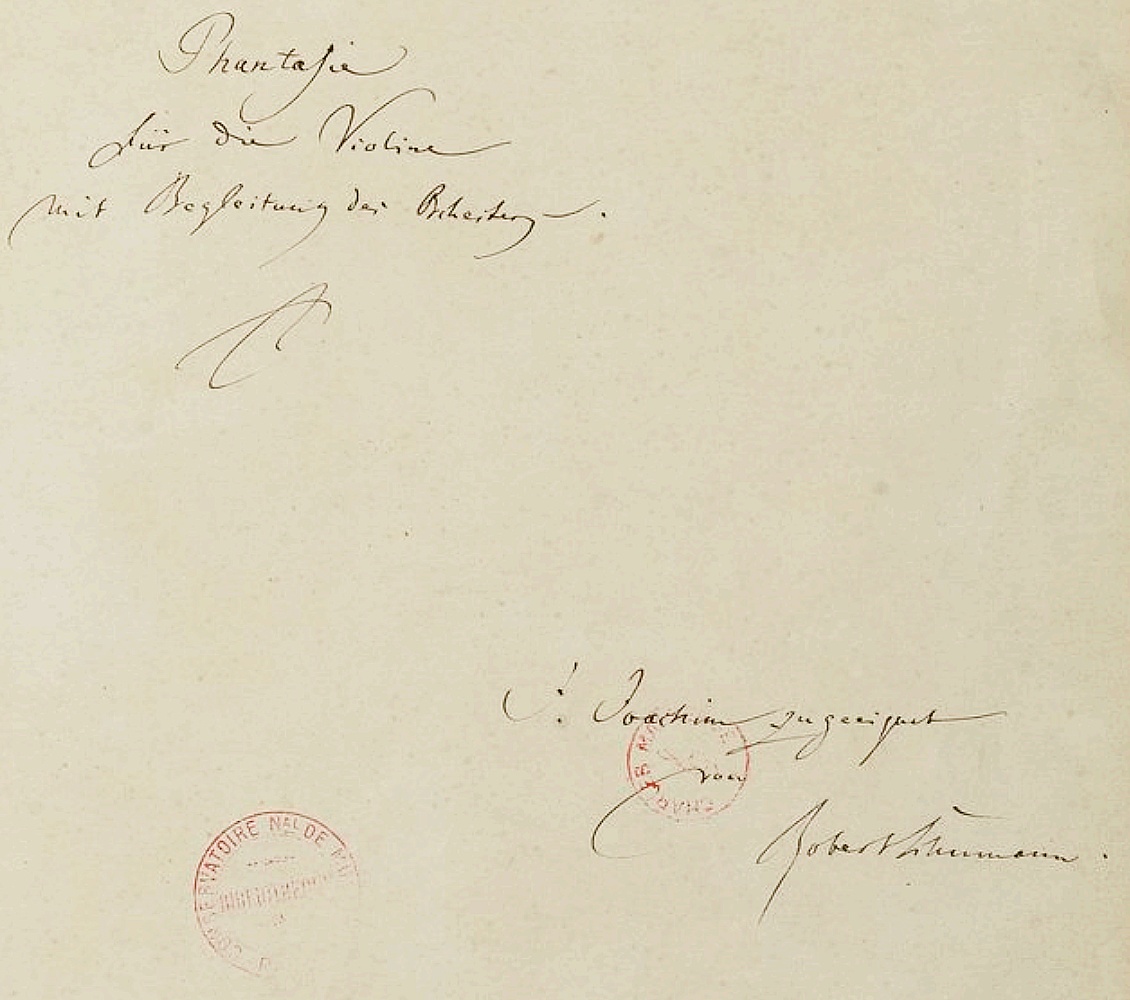 Phantasie
für die Violine
mit Begleitung des Orchesters.
J. Joachim zugeeignet
von
Robert Schumann.
CONSERVATOIRE NAL DE MUS
BIBLIOTHEQUE